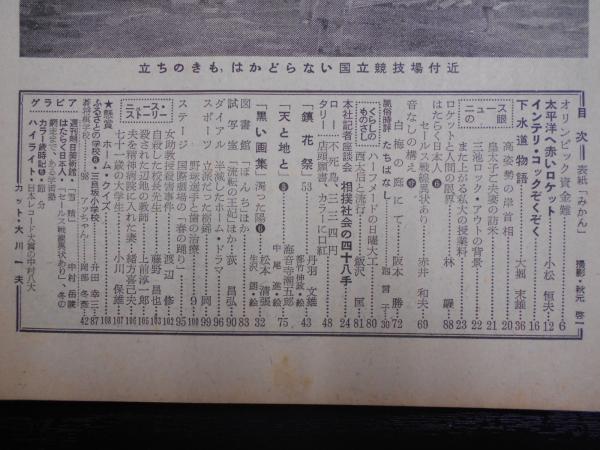 立ちのきも、はかどらない国立競技場付近
目次
表紙「みかん」
撮影・秋元啓一
オリンピック資金難……6
太平洋へ赤いロケット……小松恒夫…12
インテリ・コックぞくぞく……16
下水道物語……大堀末雄…36
ニュースの眼
高姿勢の岸首相……20
皇太子ご夫妻の訪米……21
三池ロック・アウトの背景……22
また上がる私大の授業料……23
ロケットと人間の限界……林 髞…88
はたらく日本人⑥
セールス戦線異状あり……赤井和夫…69
音なしの構え
白梅の庭にて……阪本 勝…72
風俗時評 たちばなし……30
くらしのものさし
ハーフメードの日曜大工……80
西太后と流行……飯沢 匡…81
本社記者座談会 相撲社会の四十八手……24
ロータリー
不死鳥、三二四四円……48
店頭麻雀、カラーに口紅
「鎮花祭」53……丹羽文雄・都竹伸政・絵…43
「天と地と」⑤……海音寺潮五郎・中尾進・絵…75
「黒い画集」濁った陽⑥……松本清張・生沢朗・絵…32
図書館 「ぼんち」ほか……83
試写室 「流転の王妃」ほか……荻昌弘…90
ダイアル 半減したホーム・ドラマ……96
スポーツ 立派だった樹錦……岡…99
野球選手と歯の治療……9
ステージ 国際劇場の「春の踊り」……95
ニュース・ストーリー
女助教授殺人事件……渡辺 修…102
自殺した校長先生……藤野昌也…103
殺された辺地の教師……上前淳一郎…105
夫を精神病院に入れた妻……緒方喜己夫…106
七十一歳の大学生……小川保雄…107
★懸賞 ホーム・クイズ……108
ふるさとの学校⑥・三良坂小学校
新将棋学校
升田幸三…87
岡部冬彦…42
グラビア
週刊朝日美術館・「雪晴」……中村岳陵
はたらく日本人・「セールス戦線異状あり」、冬の網走まで、ある学術塾
カラー 歳時記⑤・節分
ハイライト・日本レコード大賞の中村八大
カット・大川一夫